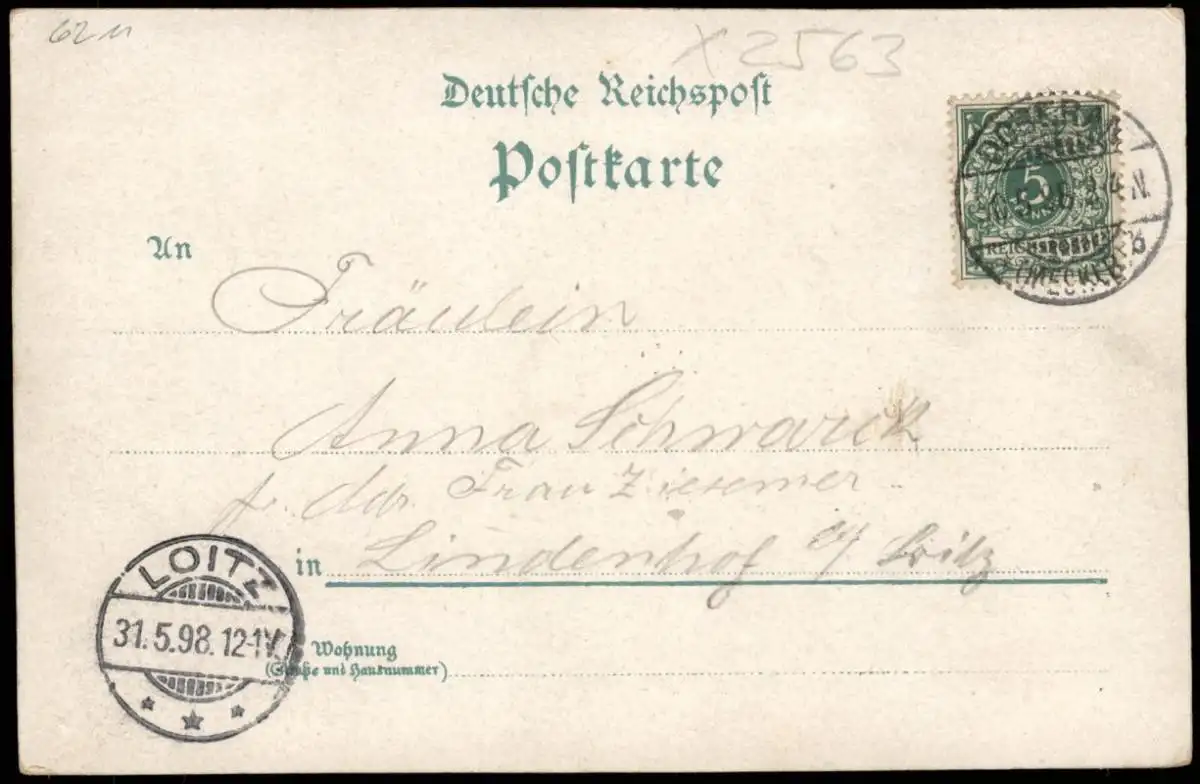 62 M
X 2563
Deutsche Reichspost
Postkarte
5
REICHSPOST
An
Fräulein
Anna Schwarck
Frau Ziesemer
in Lindenhof b/ Loitz
LOITZ
31.5.98. 12-1V.
Wohnung
(Straße und Hausnummer)